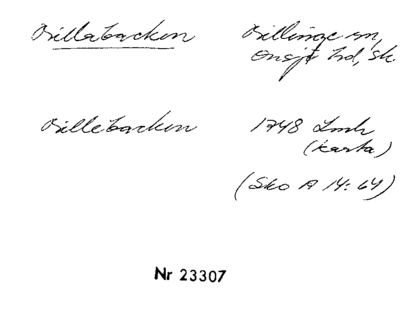 Billabacken Billinge sn,
Onsjö hd, Sk.
Billebacken 1748 Lmh
(karta)
(Sko A 14: 64)
Nr 23307